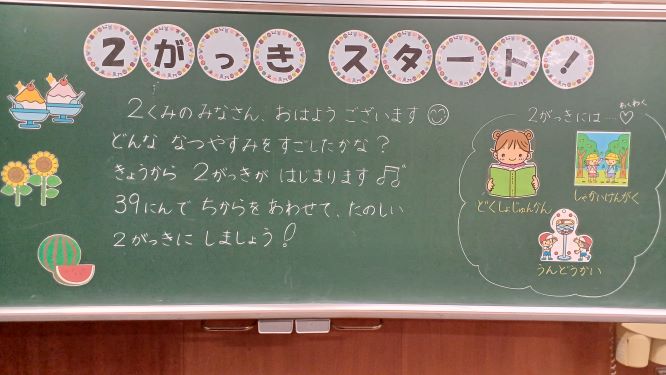 2がっき スタート!
2くみの みなさん、おはよう ございます
どんな なつやすみを すごしたかな?
きょうから 2がっきが はじまります
39にんで ちからを あわせて、たのしい
2がっきに しましょう!
わくわく
2がっきには…♡
どくしょじゅんかん
しゃかいけんがく
うんどうかい